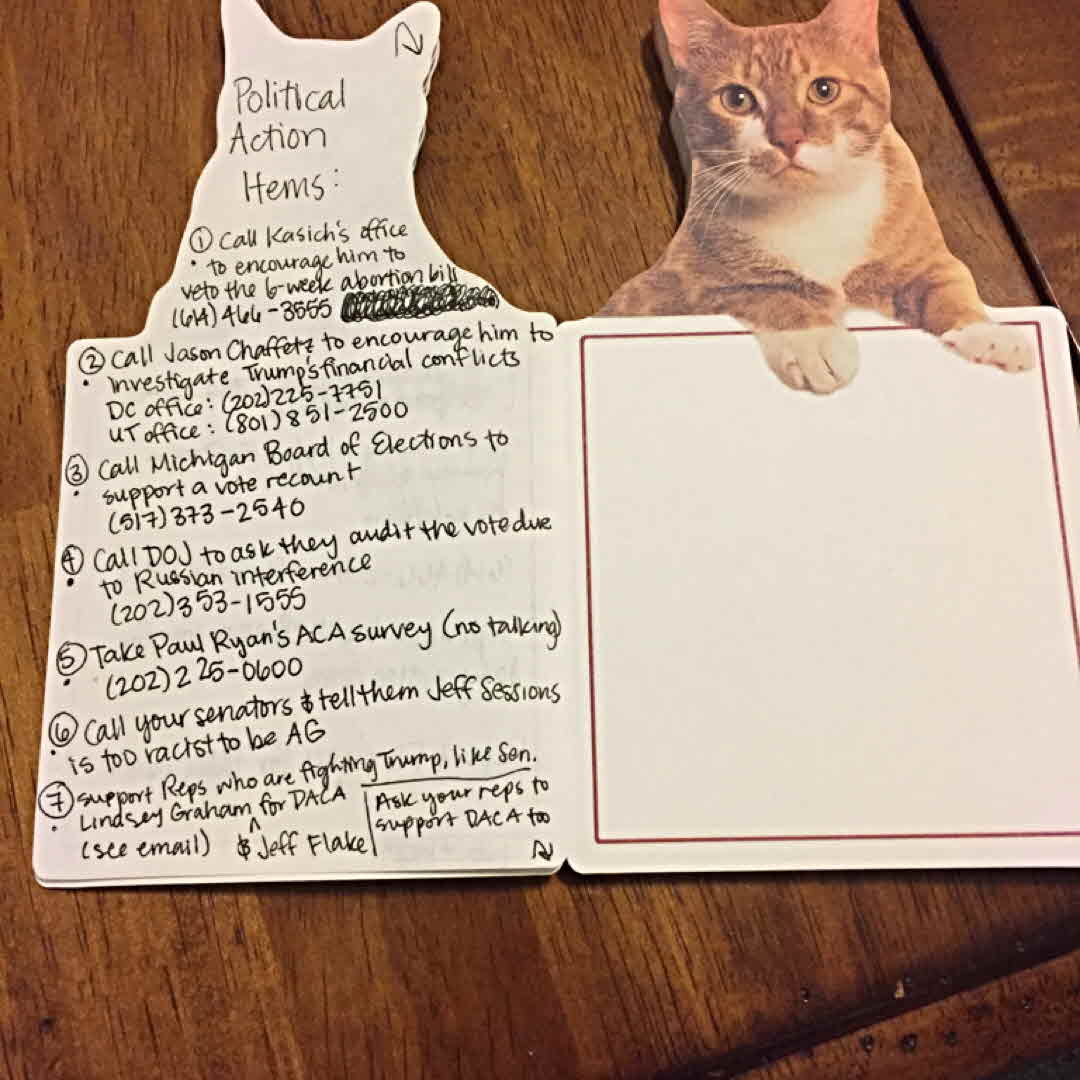 Political
Action
Items:
① Call Kasich's office
• to encourage him to
veto the 6-week abortion bill
(614) 466-3555
② Call Jason Chaffetz to encourage him to
• investigate Trump's financial conflicts
DC office: (202) 225-7751
UT office: (801) 851-2500
③ Call Michigan Board of Elections to
• support a vote recount
(517) 373-2540
④ Call DOJ to ask they audit the vote due
• to Russian interference
(202) 353-1555
⑤ Take Paul Ryan's ACA survey (no talking)
• (202) 225-0600
⑥ Call your senators & tell them Jeff Sessions
• is too racist to be AG
⑦ Support Reps who are fighting Trump, like Sen.
• Lindsey Graham ^ for DACA
(see email) & Jeff Flake
Ask your reps to
support DACA too